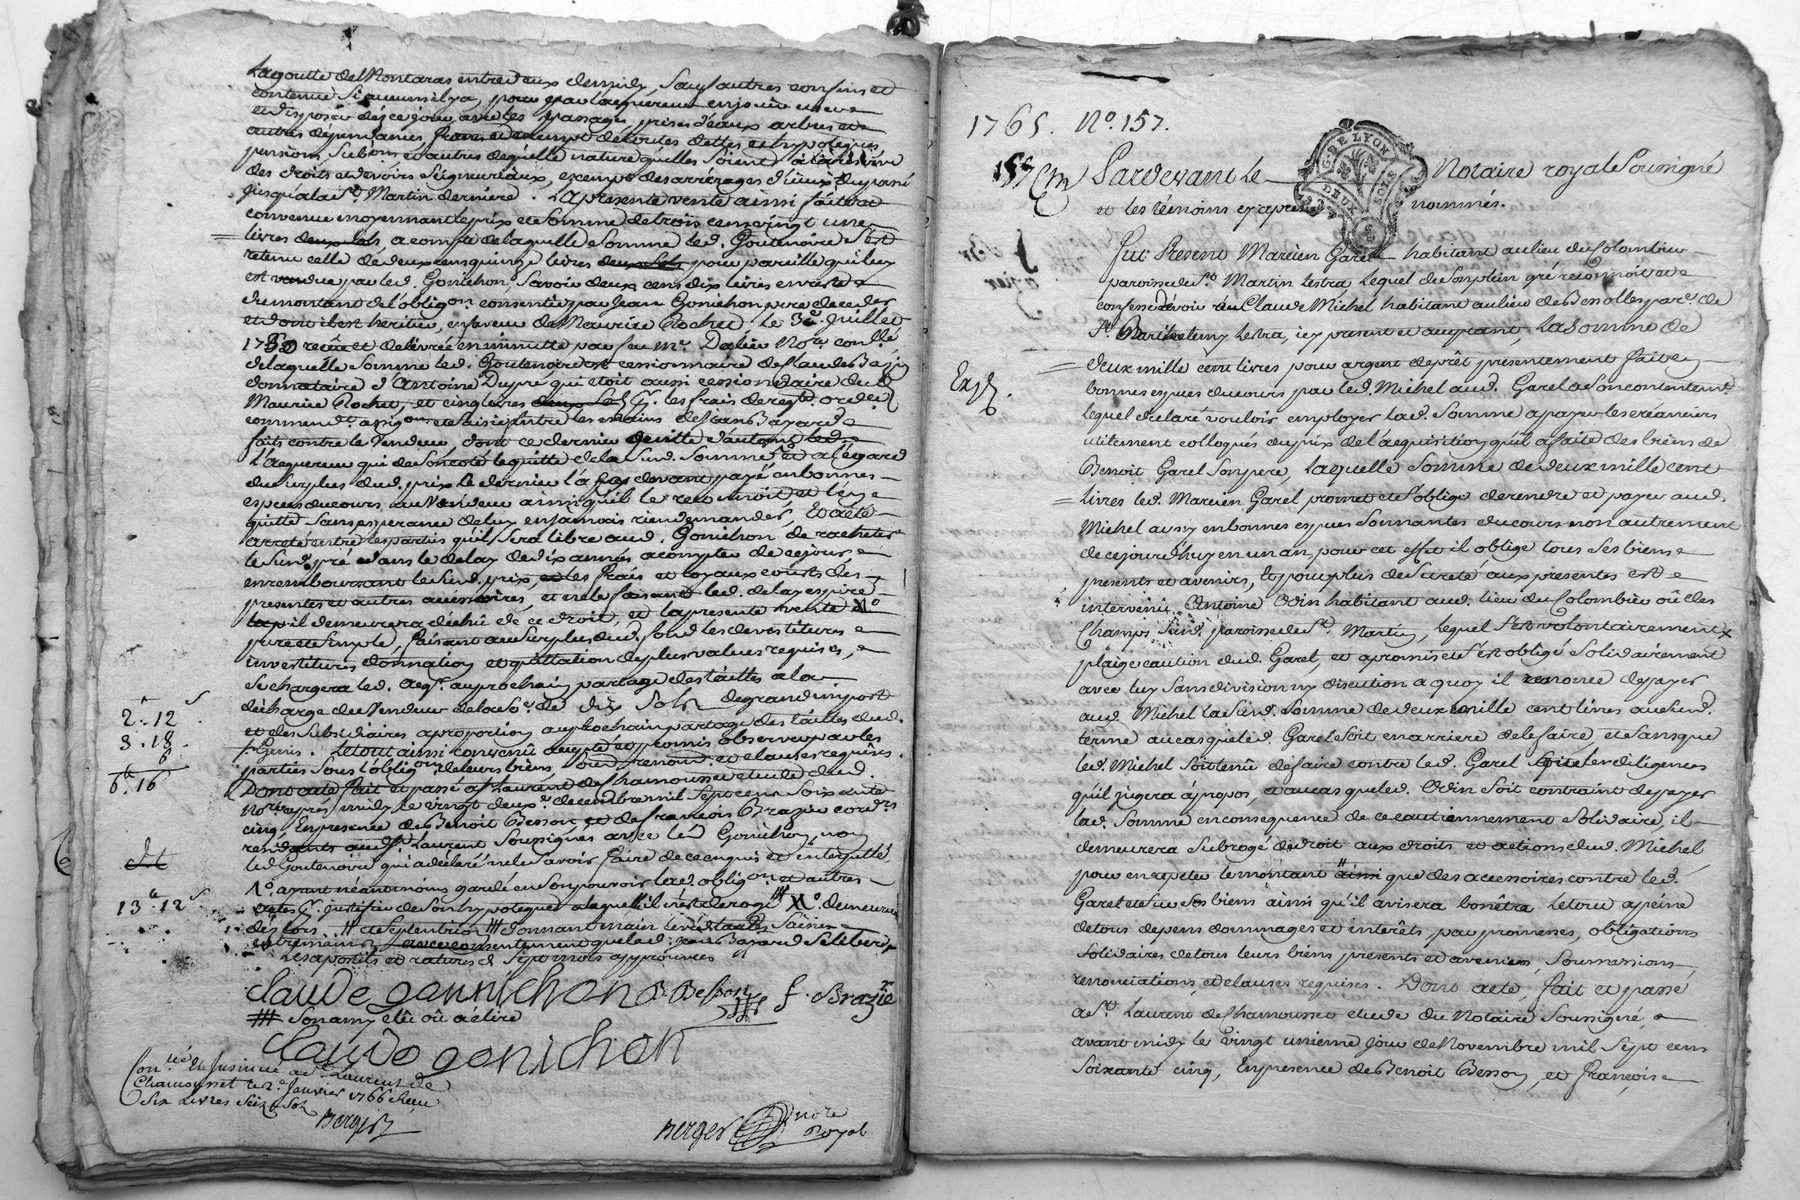 Lagoutte de Montaras entre deux demidy, Sauf autres confins et
contenue Si aucuns il y a, pour par l'acquereur en jouir
et disposer dès ce jour avec les passages, prises d'eaux arbres et
autres dépendances, franc et exempt de toutes dettes et hypoteques
pensions, et autres de quelle nature qu'elles Soient
des droits et devoirs Seigneuriaux, exempt des arrérages d'iceux du passé
jusqu'a la St. Martin derniere. La presente vente ainsi faite et
convenue moyennant le prix et Somme de trois cens vingt une
livres deux sols, a compte de laquelle Somme led. Goutenoire s'est
retenu celle de deux cens quinze livres deux sols pour pareille qui luy
est par led. Gonichon, Savoir deux cens dix livres en reste
du montant de l'oblig.on consentie par Jean Gonichon pere
et dont il est heritier, en faveur de Maurice Rochet, le 30e. Juillet
17 reçüe et delivrée en minutte par feu Me.
de laquelle Somme led. Goutenoire est cessionnaire de Claude
donnataire d'Antoine Dupré qui étoit aussi cessionnaire dud.
Maurice Rochet, et cinq livres deux les frais de
commend.t assig.on et Saisie entre les mains de
faits contre le Vendeur, dont ce dernier quitte d'autant led.
l'acquereur qui de Son coté le quitte de la Susd. Somme, et a l'égard
du Surplus dud. prix le dernier l'a cy devant payé en bonnes
especes du cours au Vendeur ainsi qu'il le reconnoit et l'en
quitte Sans esperance de luy en jamais rien demander, Et a été
arreté entre les parties qu'il Sera libre aud. Gonichon de racheter
le Susd. pré dans le delay de dix années a compter de ce jour
en remboursant le Susd. prix, les frais et loyaux cousts des
presentes et autres accessoires, et ne le faisant led. delay expiré
il demeurera déchu de ce droit, et la presente vente Xo
pure et Simple, faisant au Surplus dud. fond les devestitures
investitures donnation et quittation de plus values requises,
Se chargera led. acqr. au prochain partage des tailles a la
décharge du Vendeur de la cote de dix Sols de grand impost
et des Subsidiaires a proportion au prochain partage des tailles dud.
. Le tout ainsi convenu accepté et promis observer par les
parties Sous l'oblig.on de leurs biens, Soum. renon. et clauses requises.
Dont acte fait et passé a St. Laurent de Chamousset etude dud.
Nore. après midy le vingt deuxe. decembre mil Sept cens Soixante
cinq En presence de Benoit Besson et de François Brazier cord.rs
residants aud. St. Laurent Soussignés avec led. Gonichon, non
led Goutenoire qui a déclaré ne le Savoir faire de ce enquis et interpellé
Xo. ayant néantmoins gardé en Son pouvoir lad. oblig.on et autres
actes pr. justifier de Son hypoteque a laquelle il n'est derogé Xo. demeurera
dès lors
Les apostils et ratures de Sept mots approuvées
2 . 12
3 . 18
8
6 . 16
13 . 12
Claude gonnichon B. Besson f. Brazié
Son amy elû où à élire
Claude gonichon
Con.lé et insinué a St. Laurent de
Chamousset le 2e. Janvier 1766 Reçu
Six Livres Seize Sols
Berger
Berger nore
Royal
1765. No. 157.
157 Cm Pardevant Le Notaire royal Soussigné
et les témoins cy après nommés.
G. DE LYON
DEUX SOLS
Fut Present Marcien Garel habitant au lieu du Colombier
paroisse de St. Martin Lestra Lequel de Son plein gré reconnoit et
confesse devoir à Claude Michel habitant au lieu de Bessolles parse. de
St. Barthelemy Lestra, icy present et acceptant, La Somme de
Exp.
deux mille cent livres pour argent de prêt presentement fait en
bonnes especes du cours par led. Michel aud. Garel a Son contentemt.
lequel déclaré vouloir employer lad. Somme a payer les créanciers
utilement colloqués du prix de l'acquisition qu'il a faite des biens de
Benoit Garel Son pere, laquelle Somme de deux mille cent
livres led. Marcien Garel promet et S'oblige de rendre et payer aud.
Michel aussy en bonnes especes Sonnantes du cours non autrement
de ce jourd'huy en un an, pour cet effet il oblige tous Ses biens
presents et avenirs, Et pour plus de Sureté aux presentes est
intervenu Antoine Odin habitant aud. lieu du Colombier où des
Champs Susd. paroisse de St. Martin, lequel S'est volontairement
plaige caution dud. Garel, et a promis et S'est obligé Solidairement
avec luy Sans division ny discution a quoy il renonce de payer
aud. Michel la Susd. Somme de deux mille cent livres au Susd.
terme au cas que led. Garel Soit en arriere de le faire, et Sans que
led. Michel Soit tenu de faire contre led. Garel diligences
qu'il jugera apropos, et au cas que led. Odin Soit contraint de payer
lad. Somme en consequence de ce cautionnement Solidaire, il
demeurera Subrogé de droit aux droits et actions dud. Michel,
pour en repeter le montant ainsi que des accessoires contre led.
Garel et Sur Ses biens ainsi qu'il avisera bon être Le tout a peine
de tous depens dommages et interêts, par promesses, obligations
Solidaires de tous leurs biens presents et avenirs, Soumissions,
renonciations, et clauses requises. Dont acte, fait et passé
a St. Laurent de Chamousset etude du Notaire Soussigné,
avant midy le vingt unieme jour de Novembre mil Sept cens
Soixante cinq, En presence de Benoit Besson, et François